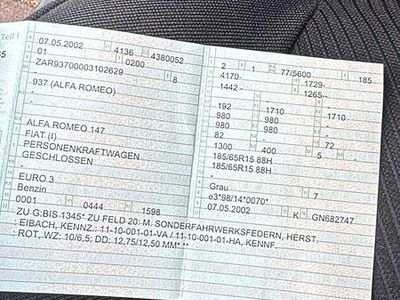 Teil I
07.05.2002 4136 4380052
01 0200 8
ZAR93700003102629
937 (ALFA ROMEO)
ALFA ROMEO 147
FIAT (I)
PERSONENKRAFTWAGEN
GESCHLOSSEN
EURO 3
Benzin
0001 0444 1598
2 1 77/5600 185
4170- 1729-
1442 - 1265--
192 1710 1710
980 980 72
980 980 82
1300 400 5
185/65R15 88H
185/65R15 88H
Grau 7
e3*98/14*0070*
07.05.2002 K GN682747
ZU G:BIS 1345* ZU FELD 20: M. SONDERFAHRWERKSFEDERN, HERST.
: EIBACH, KENNZ.: 11-10-001-01-VA / 11-10-001-01-HA, KENNF.
: ROT, WZ: 10/6,5; DD: 12,75/12,50 MM*